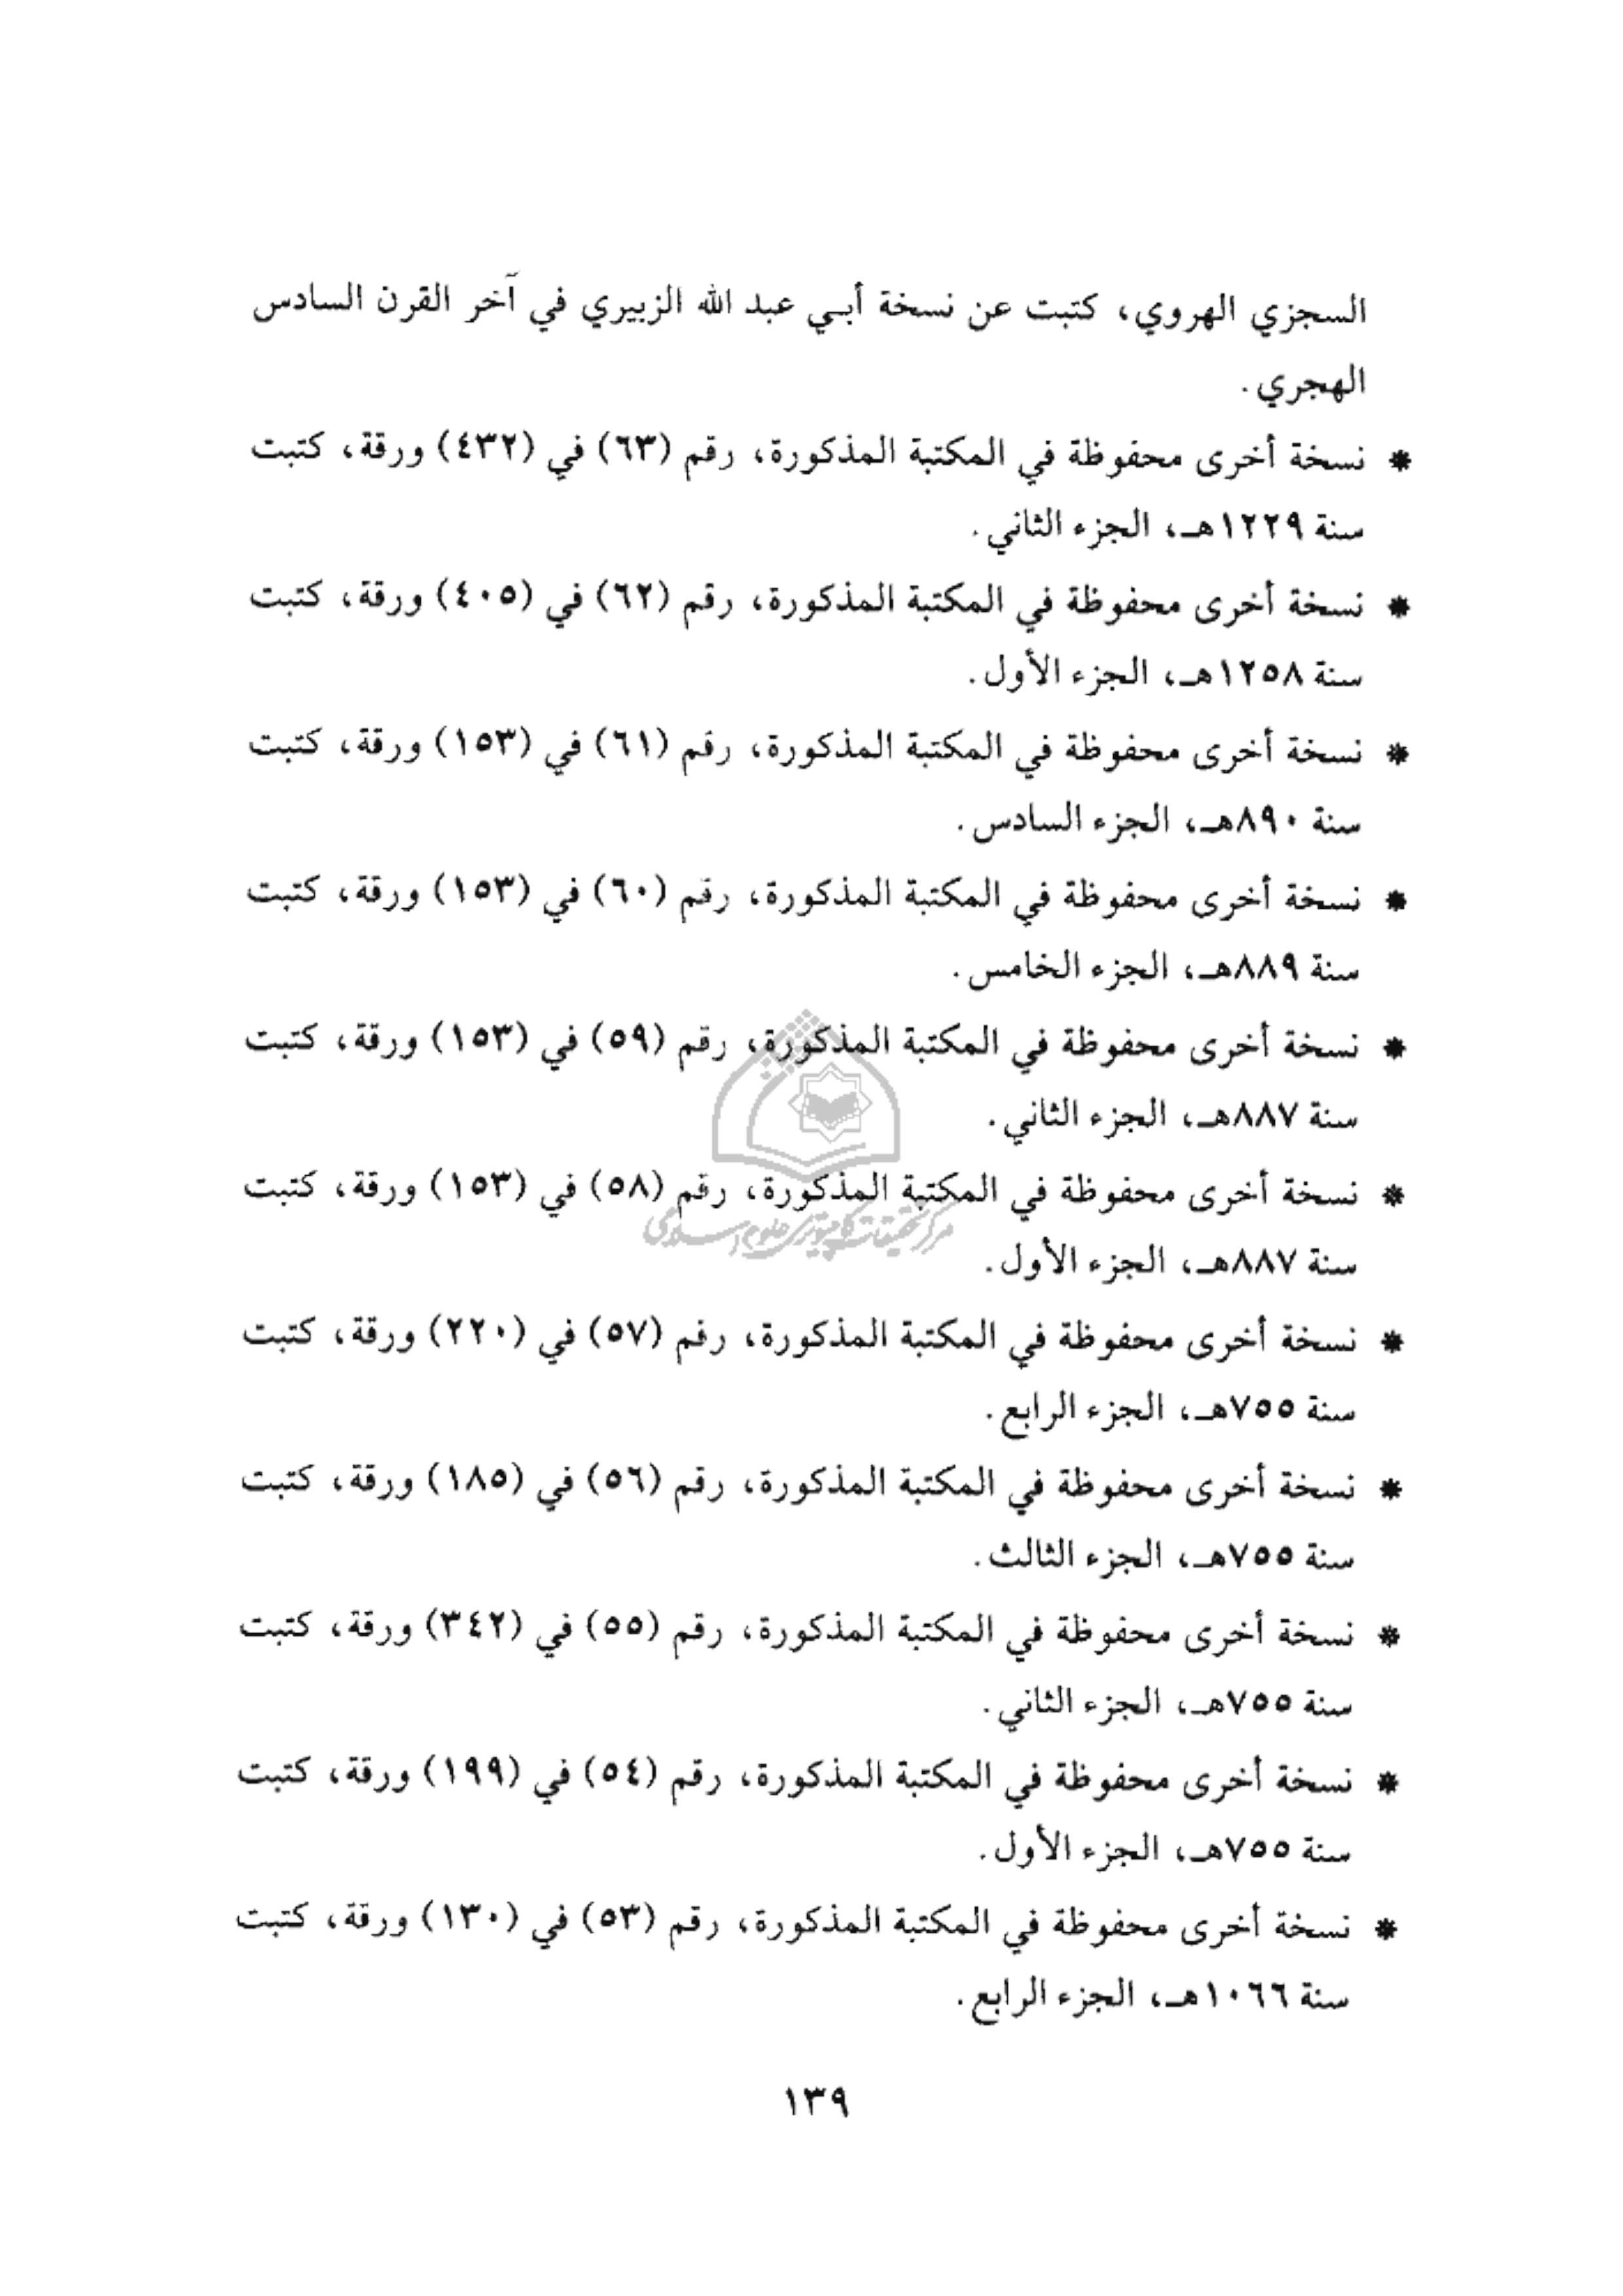 السجزي الهروي، كتبت عن نسخة أبـي عبد الله الزبيري في آخر القرن السادس
الهجري.
* نسخة أخرى محفوظة في المكتبة المذكورة، رقم (٦٣) في (٤٣٢) ورقة، كتبت
سنة ١٢٢٩هـ، الجزء الثاني.
* نسخة أخرى محفوظة في المكتبة المذكورة، رقم (٦٢) في (٤٠٥) ورقة، كتبت
سنة ١٢٥٨هـ، الجزء الأول.
* نسخة أخرى محفوظة في المكتبة المذكورة، رقم (٦١) في (١٥٣) ورقة، كتبت
سنة ٨٩٠هـ، الجزء السادس.
* نسخة أخرى محفوظة في المكتبة المذكورة، رقم (٦٠) في (١٥٣) ورقة، كتبت
سنة ٨٨٩هـ، الجزء الخامس.
* نسخة أخرى محفوظة في المكتبة المذكورة، رقم (٥٩) في (١٥٣) ورقة، كتبت
سنة ٨٨٧هـ، الجزء الثاني.
* نسخة أخرى محفوظة في المكتبة المذكورة، رقم (٥٨) في (١٥٣) ورقة، كتبت
مرکز تحقیقات کامپیوتری علوم اسلامی
سنة ٨٨٧هـ، الجزء الأول.
* نسخة أخرى محفوظة في المكتبة المذكورة، رقم (٥٧) في (٢٢٠) ورقة، كتبت
سنة ٧٥٥هـ، الجزء الرابع.
* نسخة أخرى محفوظة في المكتبة المذكورة، رقم (٥٦) في (١٨٥) ورقة، كتبت
سنة ٧٥٥هـ، الجزء الثالث.
* نسخة أخرى محفوظة في المكتبة المذكورة، رقم (٥٥) في (٣٤٢) ورقة، كتبت
سنة ٧٥٥هـ، الجزء الثاني.
* نسخة أخرى محفوظة في المكتبة المذكورة، رقم (٥٤) في (١٩٩) ورقة، كتبت
سنة ٧٥٥هـ، الجزء الأول.
* نسخة أخرى محفوظة في المكتبة المذكورة، رقم (٥٣) في (١٣٠) ورقة، كتبت
سنة ١٠٦٦هـ، الجزء الرابع.
١٣٩